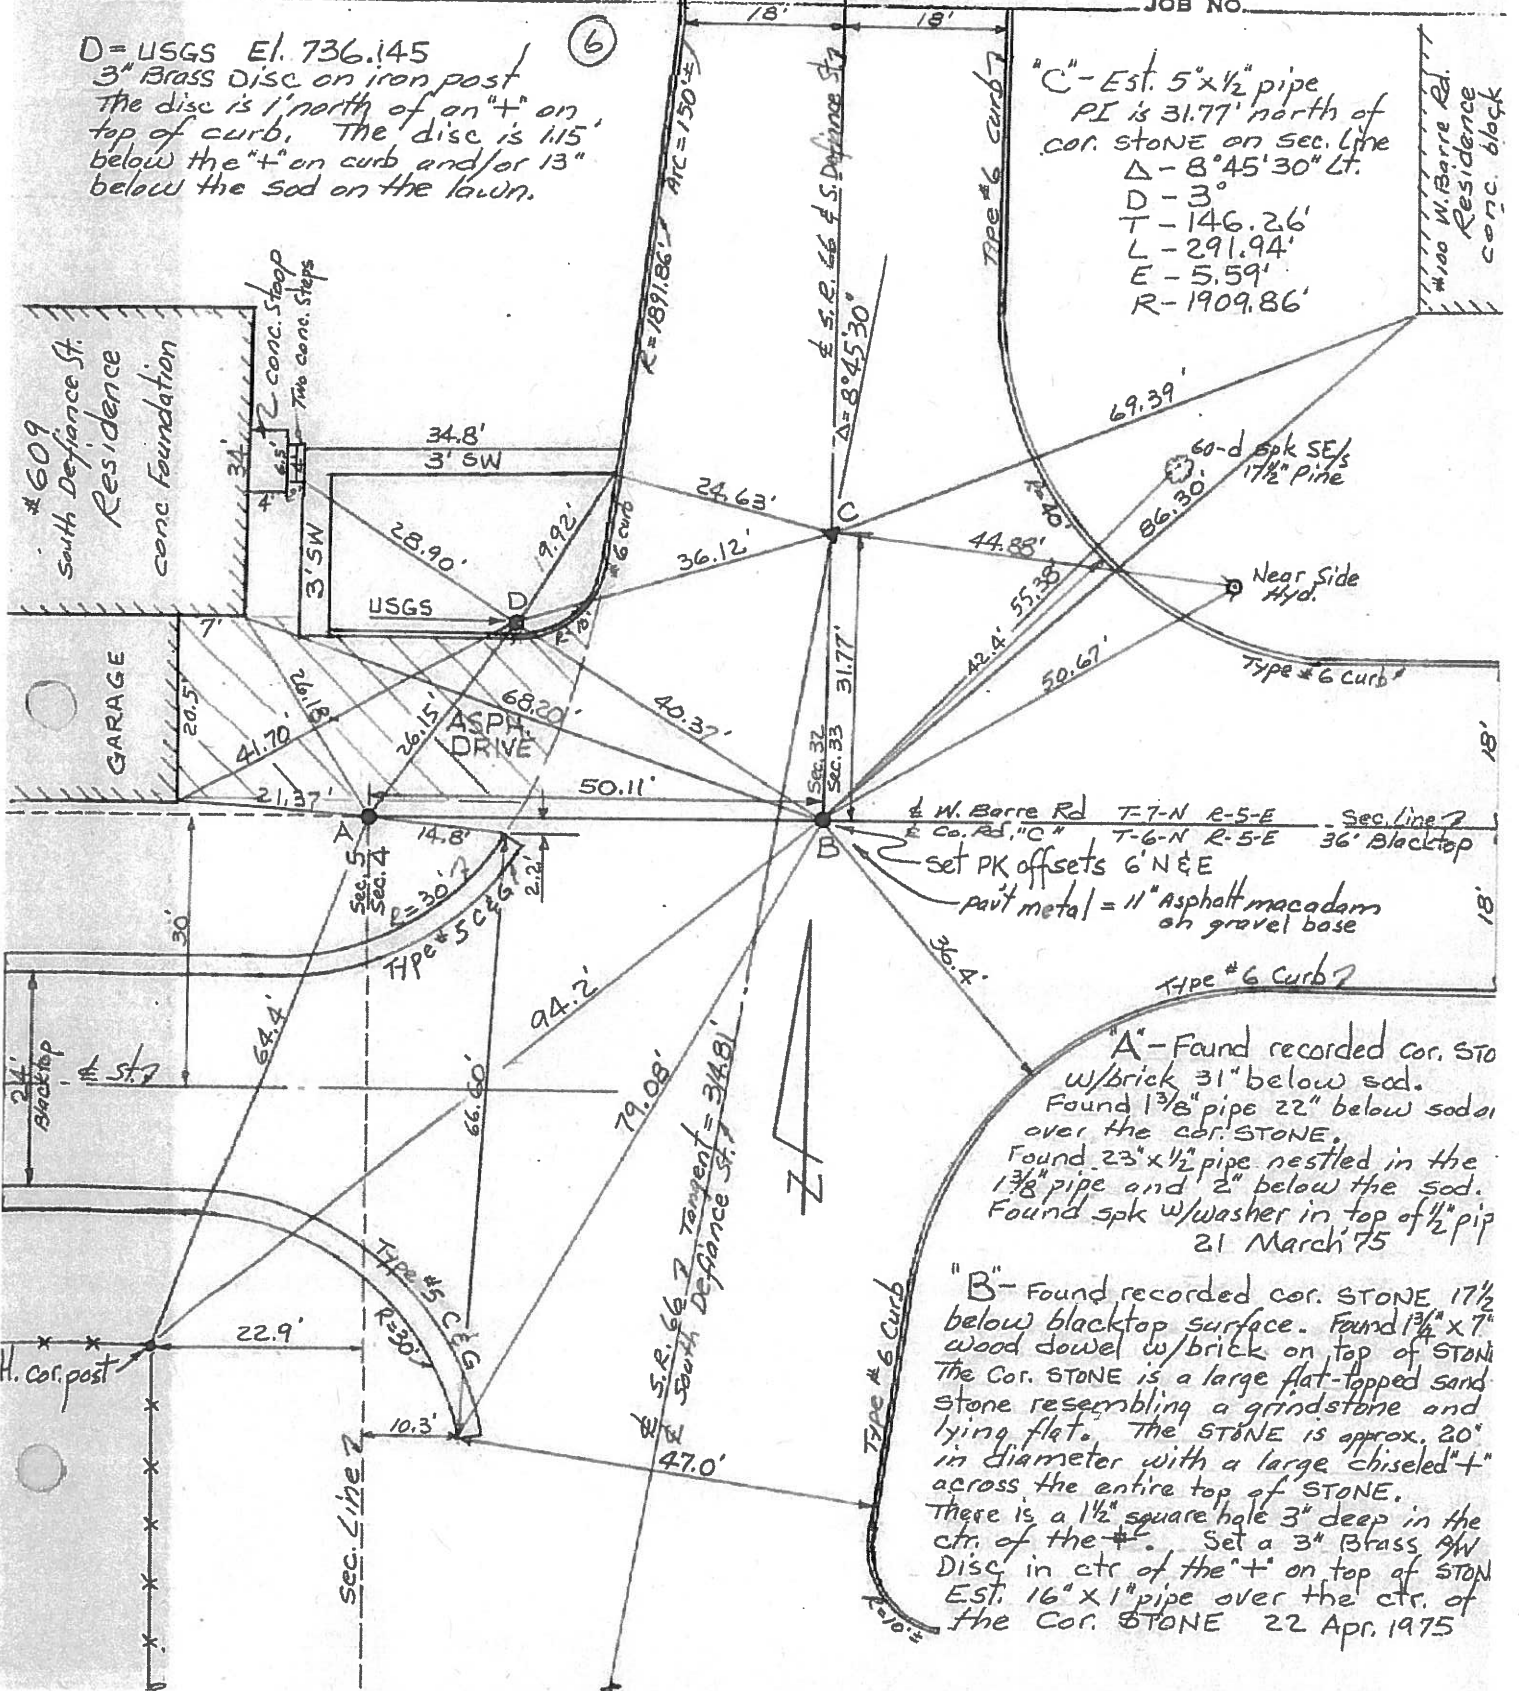 JOB NO.
18'
18'
6
D = USGS El. 736.145
3" Brass Disc on iron post
The disc is 1' north of an "+" on
top of curb. The disc is 1.15'
below the "+" on curb and/or 13"
below the sod on the lawn.
"C" - Est. 5" x 1/2" pipe
PI is 31.77' north of
cor. STONE on sec. line
Δ - 8°45'30" Lt.
D - 3°
T - 146.26'
L - 291.94'
E - 5.59'
R - 1909.86'
#100 W. Barre Rd.
Residence
conc. block
R = 1891.86' Arc = 150'±
℄ S.R. 66 & S. Defiance St.
Type #6 curb
Δ = 8°45'30"
#609
South Defiance St.
Residence
conc Foundation
34'
conc. Stoop
Two conc. Steps
6.5'
4'
4'
34.8'
3' SW
3' SW
28.90'
19.92'
#6 curb
24.63'
36.12'
C
69.39'
60-d spk SE/s
17 1/2" Pine
R=40'
86.30'
44.88'
55.38'
42.4'
Near Side
Hyd.
50.67'
Type #6 Curb
D
USGS
7'
GARAGE
20.5'
26.18'
41.70'
26.15'
ASPH.
DRIVE
68.20'
40.37'
31.77'
Sec. 32
Sec. 33
21.37'
50.11'
A
14.8'
Sec. 5
Sec. 4
R = 30'
Type #5 C&G
2.2'
B
℄ W. Barre Rd T-7-N R-5-E Sec. Line
℄ Co. Rd. "C" T-6-N R-5-E 36' Blacktop
18'
18'
set PK offsets 6' N & E
pav't metal = 11" Asphalt macadam
on gravel base
36.4'
30'
64.4'
94.2'
66.60'
79.08'
24'
Blacktop
℄ St.
℄ S.R. 66 Tangent = 314.81'
℄ South Defiance St.
Type #6 Curb
"A" - Found recorded cor. STO
w/brick 31" below sod.
Found 1 3/8" pipe 22" below sod
over the cor. STONE.
Found 23" x 1/2" pipe nestled in the
1 3/8" pipe and 2" below the sod.
Found spk w/washer in top of 1/2" pip
21 March '75
"B" - Found recorded cor. STONE 17 1/2
below blacktop surface. Found 1 3/4" x 7"
wood dowel w/brick on top of STON
The Cor. STONE is a large flat-topped sand
stone resembling a grindstone and
lying flat. The STONE is approx. 20"
in diameter with a large chiseled "+"
across the entire top of STONE.
There is a 1 1/2" square hole 3" deep in the
ctr. of the +. Set a 3" Brass
Disc in ctr of the "+" on top of STON
Est. 16" X 1" pipe over the ctr. of
the Cor. STONE 22 Apr. 1975
Type #5 C&G
R=30'
22.9'
H. cor. post
10.3'
47.0'
sec. Line
Type #6 Curb
R=10'±